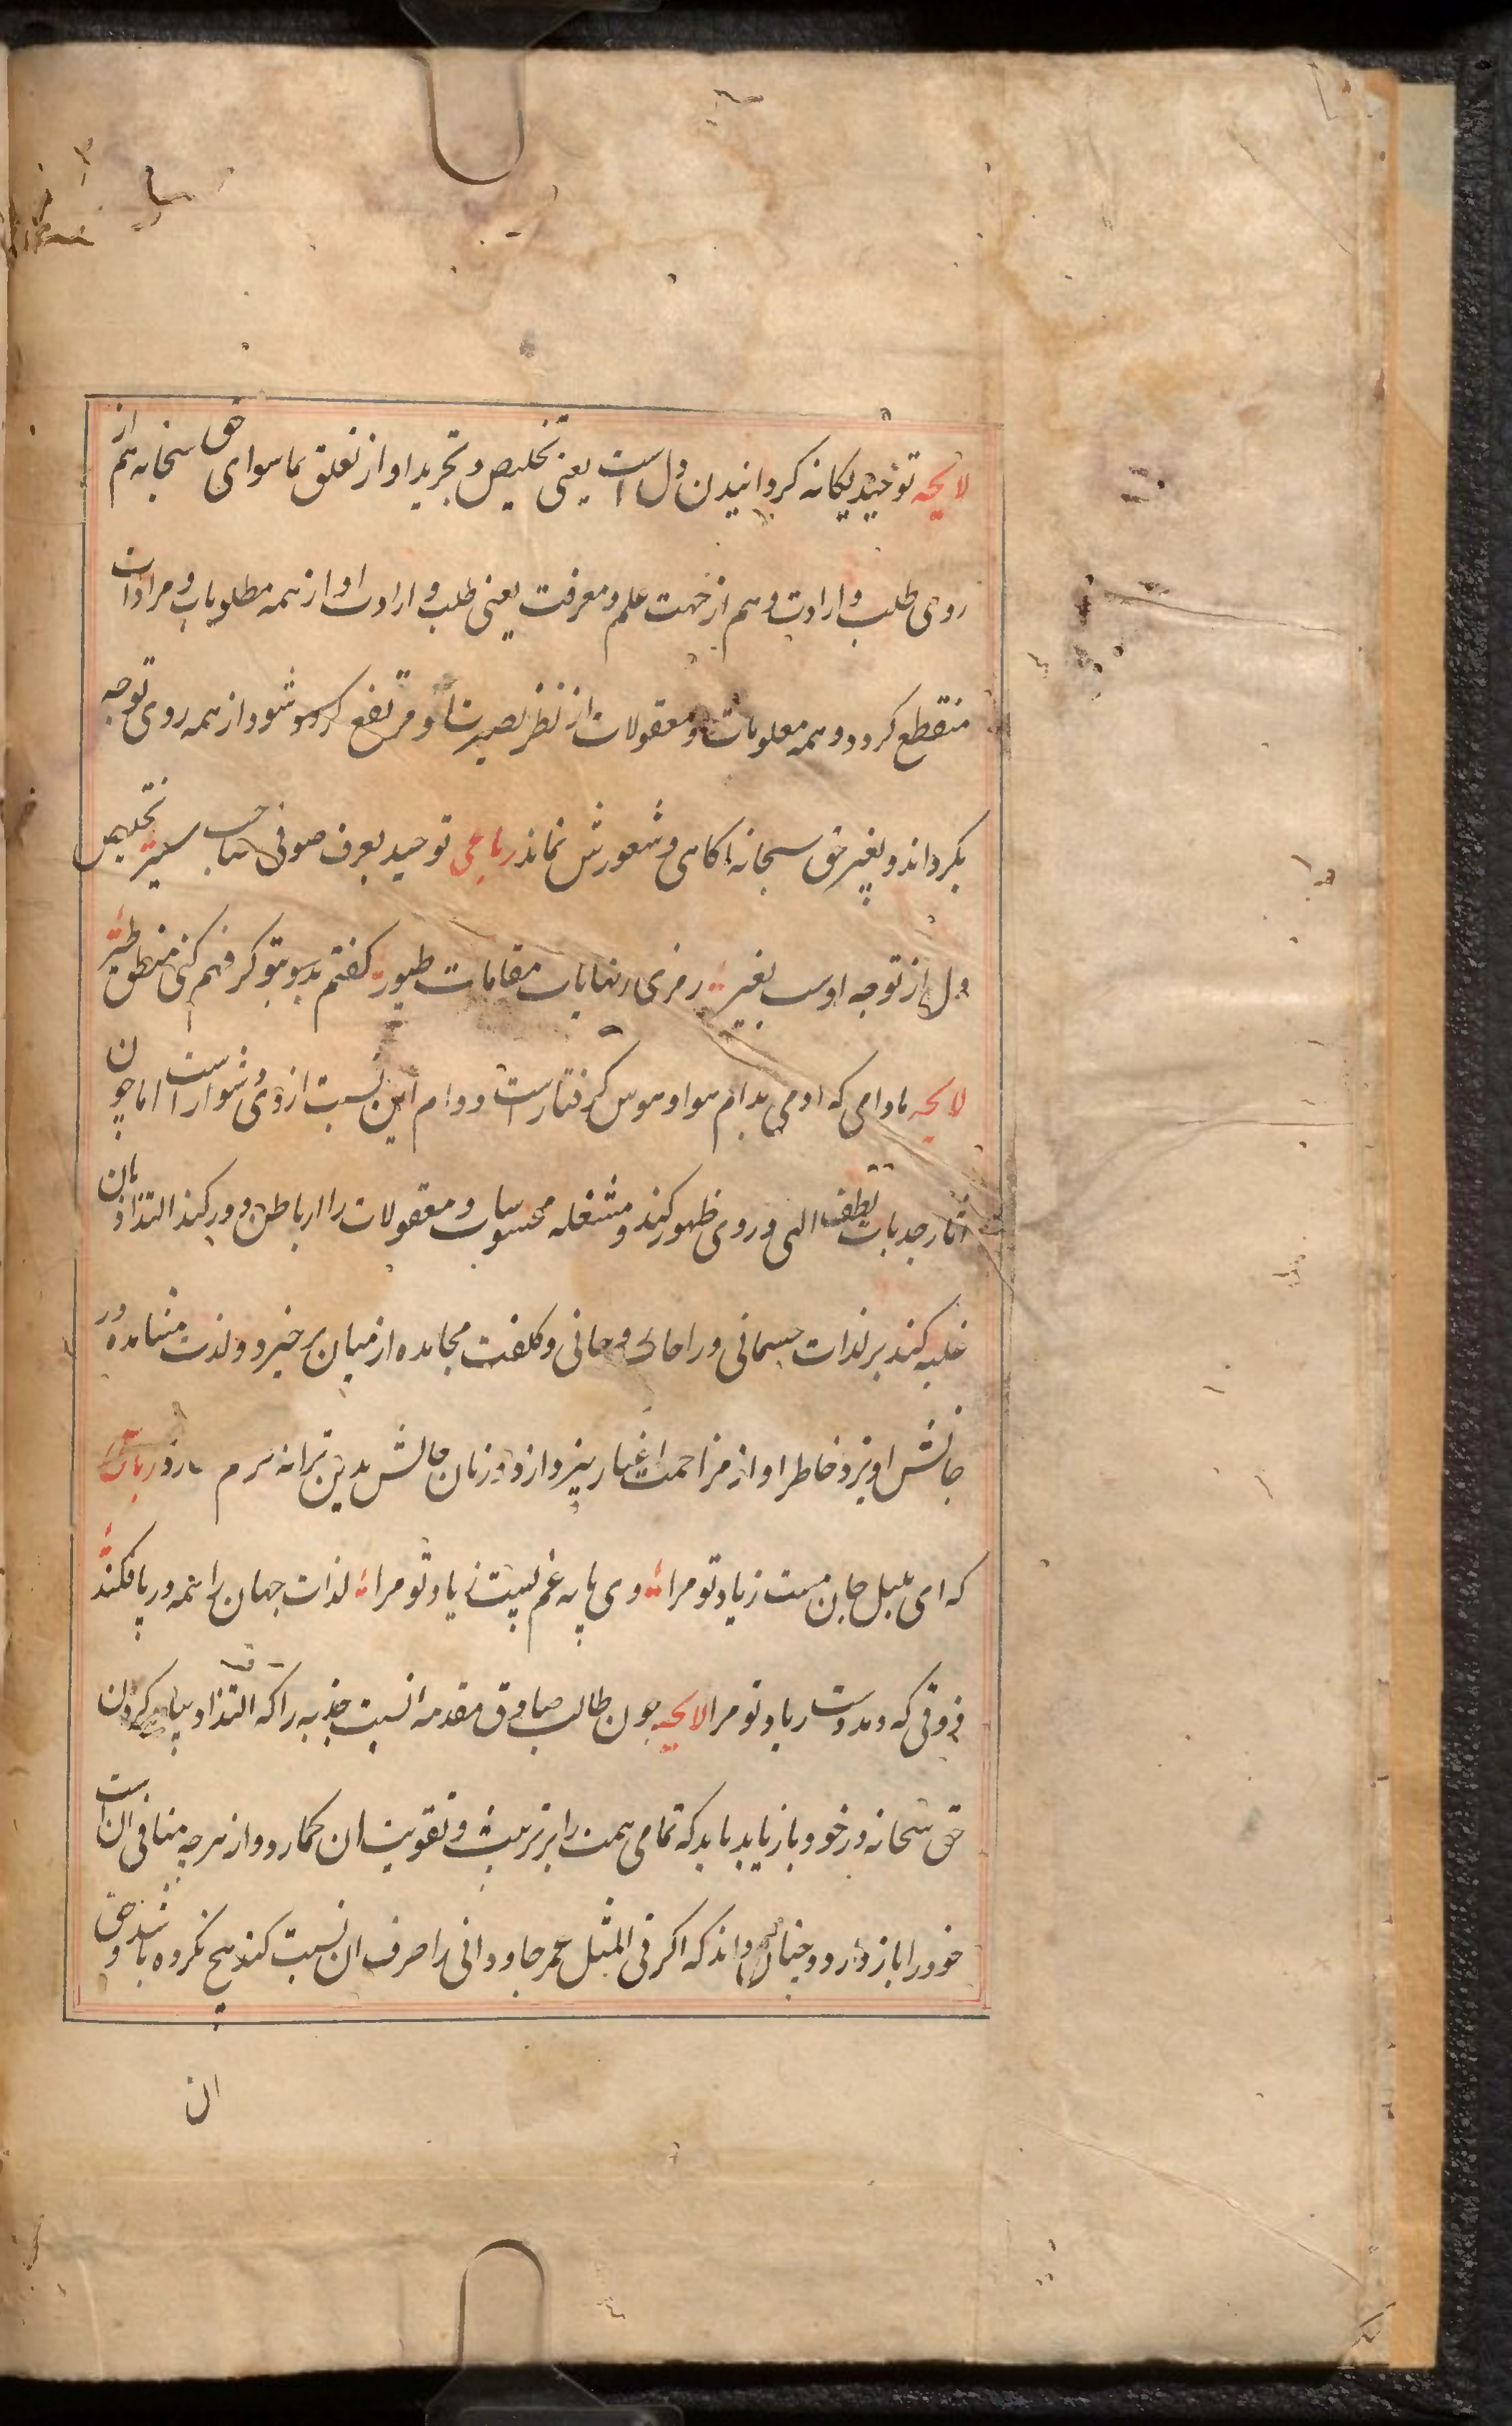 لایحه توحید یکانه کردانیدن دل است یعنی تخلیص و تجرید او از تعلق بماسوای حق سبحانه هم از
روی طلب و ارادت و هم از جهت علم و معرفت یعنی طلب و ارادت او از همه مطلوبات و مرادات
منقطع کردد و همه معلومات و معقولات از نظر بصیرت او مرتفع شود از همه روی توجه
بکرداند و بغیر حق سبحانه اکاهی و شعورش نماند رباعی توحید بعرف صوفی صاحب سیر تخلیص
دل از توجه اوست بغیر رمزی ز نهایات مقامات طیور کفتم بتو کر فهم کنی منطق طیر
لایحه مادامی که ادمی بدام هوا و هوس کرفتارست دوام این نسبت از وی دشوار است اما چون
اثار جذبات لطف الهی در وی ظهور کند و مشغله محسوسات و معقولات را از باطن دور کند التذاذ بان
غلبه کند بر لذات جسمانی و راحات روحانی و کلفت مجاهده از میان برخیزد و لذت مشاهده در
جانش اویزد خاطر او از مزاحمت اغیار بپردازد و زبان حالش بدین ترانه ترنم سازد رباعی
که ای بلبل جان مست ز یاد تو مرا وی پایه غم پست ز یاد تو مرا لذات جهان را همه در پا فکند
ذوقی که دهد دست ز یاد تو مرا لایحه چون طالب صادق مقدمه نسبت جذبه را که التذاذ بیاد کردن
حق سبحانه در خود باز یابد باید که تمامی همت را بر تربیت و تقویت ان کمارد و از هر چه منافی ان است
خود را باز دارد و چنان داند که اکر فی المثل عمر جاودانی را صرف ان نسبت کند هیچ نکرده باشد و حق
ان